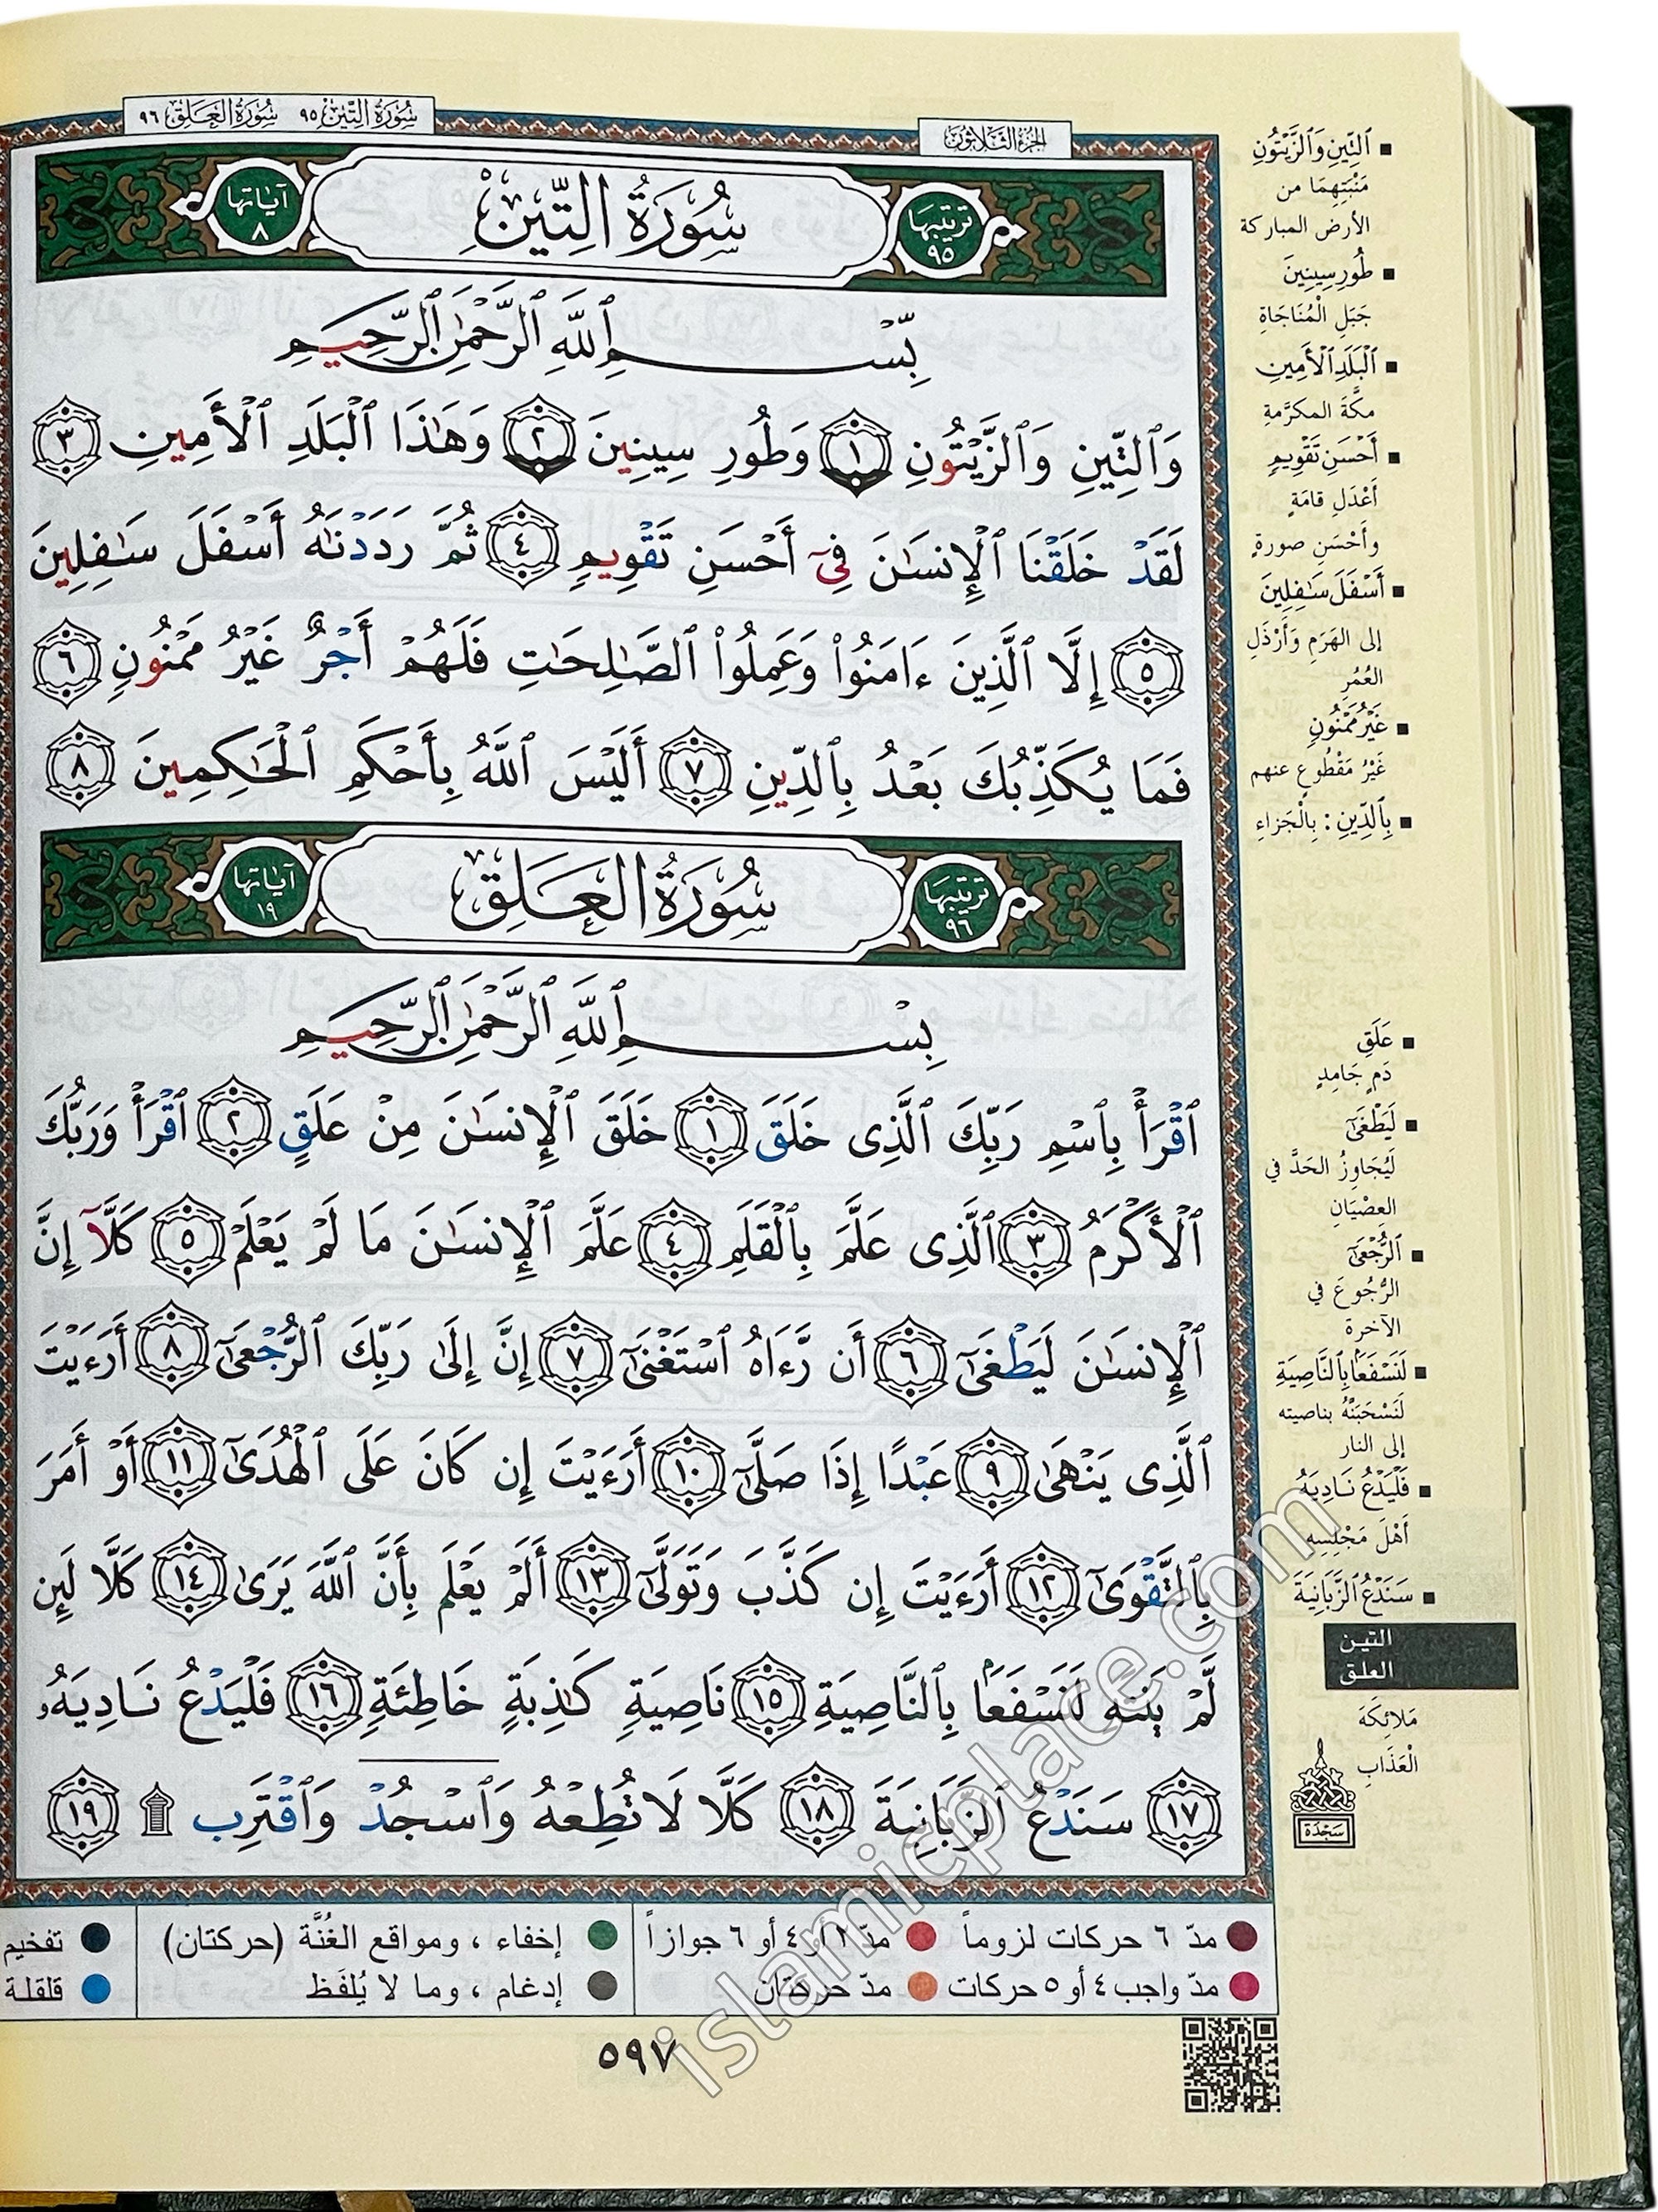 سُورَةُ التِّين ٩٥ سُورَةُ العَلَق ٩٦
الجزء الثلاثون
ترتيبها ٩٥ سُورَةُ التِّينِ آياتها ٨
بِّسْمِ ٱللَّهِ ٱلرَّحْمَٰنِ ٱلرَّحِيمِ
وَٱلتِّينِ وَٱلزَّيْتُونِ ١ وَطُورِ سِينِينَ ٢ وَهَٰذَا ٱلْبَلَدِ ٱلْأَمِينِ ٣
لَقَدْ خَلَقْنَا ٱلْإِنسَٰنَ فِىٓ أَحْسَنِ تَقْوِيمٍ ٤ ثُمَّ رَدَدْنَٰهُ أَسْفَلَ سَٰفِلِينَ
٥ إِلَّا ٱلَّذِينَ ءَامَنُوا۟ وَعَمِلُوا۟ ٱلصَّٰلِحَٰتِ فَلَهُمْ أَجْرٌ غَيْرُ مَمْنُونٍ ٦
فَمَا يُكَذِّبُكَ بَعْدُ بِٱلدِّينِ ٧ أَلَيْسَ ٱللَّهُ بِأَحْكَمِ ٱلْحَٰكِمِينَ ٨
ترتيبها ٩٦ سُورَةُ العَلَقِ آياتها ١٩
بِسْمِ ٱللَّهِ ٱلرَّحْمَٰنِ ٱلرَّحِيمِ
ٱقْرَأْ بِٱسْمِ رَبِّكَ ٱلَّذِى خَلَقَ ١ خَلَقَ ٱلْإِنسَٰنَ مِنْ عَلَقٍ ٢ ٱقْرَأْ وَرَبُّكَ
ٱلْأَكْرَمُ ٣ ٱلَّذِى عَلَّمَ بِٱلْقَلَمِ ٤ عَلَّمَ ٱلْإِنسَٰنَ مَا لَمْ يَعْلَمْ ٥ كَلَّآ إِنَّ
ٱلْإِنسَٰنَ لَيَطْغَىٰٓ ٦ أَن رَّءَاهُ ٱسْتَغْنَىٰٓ ٧ إِنَّ إِلَىٰ رَبِّكَ ٱلرُّجْعَىٰٓ ٨ أَرَءَيْتَ
ٱلَّذِى يَنْهَىٰ ٩ عَبْدًا إِذَا صَلَّىٰٓ ١٠ أَرَءَيْتَ إِن كَانَ عَلَى ٱلْهُدَىٰٓ ١١ أَوْ أَمَرَ
بِٱلتَّقْوَىٰٓ ١٢ أَرَءَيْتَ إِن كَذَّبَ وَتَوَلَّىٰٓ ١٣ أَلَمْ يَعْلَم بِأَنَّ ٱللَّهَ يَرَىٰ ١٤ كَلَّا لَئِن
لَّمْ يَنتَهِ لَنَسْفَعًۢا بِٱلنَّاصِيَةِ ١٥ نَاصِيَةٍ كَٰذِبَةٍ خَاطِئَةٍ ١٦ فَلْيَدْعُ نَادِيَهُۥ
١٧ سَنَدْعُ ٱلزَّبَانِيَةَ ١٨ كَلَّا لَا تُطِعْهُ وَٱسْجُدْ وَٱقْتَرِب ۩ ١٩
■ ٱلتِّينِ وَٱلزَّيْتُونِ
مَنْبَتِهِمَا من
الأرض المباركة
■ طُورِ سِينِينَ
جَبَلِ الْمُنَاجَاةِ
■ ٱلْبَلَدِ ٱلْأَمِينِ
مكَّةَ المكرَّمةِ
■ أَحْسَنِ تَقْوِيمٍ
أعْدَلِ قامَةٍ
وأَحْسَنِ صورةٍ
■ أَسْفَلَ سَٰفِلِينَ
إلى الهَرَمِ وَأَرْذَلِ
العُمُرِ
■ غَيْرُ مَمْنُونٍ
غَيْرُ مَقْطُوعٍ عنهم
■ بِٱلدِّينِ : بِالْجَزاءِ
■ عَلَقٍ
دَمٍ جَامِدٍ
■ لَيَطْغَىٰٓ
لَيُجَاوِزُ الحَدَّ في
العِصْيَانِ
■ ٱلرُّجْعَىٰٓ
الرُّجُوعَ في
الآخرة
■ لَنَسْفَعًۢا بِٱلنَّاصِيَةِ
لَنَسْحَبَنَّهُ بناصيته
إلى النار
■ فَلْيَدْعُ نَادِيَهُ
أَهْلَ مَجْلِسِهِ
■ سَنَدْعُ ٱلزَّبَانِيَةَ
التين
العلق
مَلائِكَةَ
الْعَذَابِ
سَجْدَة
مدّ ٦ حركات لزوماً مدّ ٢ أو ٤ أو ٦ جوازاً إخفاء ، ومواقع الغُنَّة (حركتان) تفخيم
مدّ واجب ٤ أو ٥ حركات مدّ حركتان إدغام ، وما لا يُلفَظ قلقلة
٥٩٧
islamicplace.com